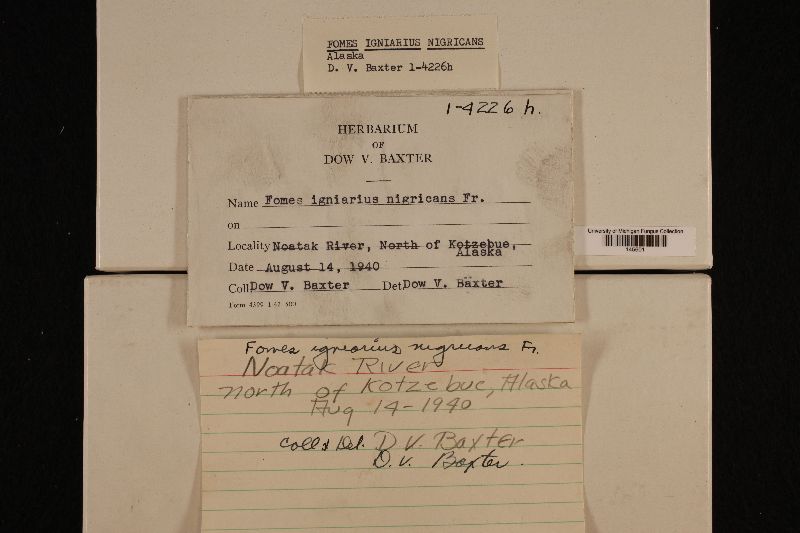 FOMES IGNIARIUS NIGRICANS
Alaska
D. V. Baxter 1-4226h
1-4226 h.
HERBARIUM
OF
DOW V. BAXTER
Name Fomes igniarius nigricans Fr.
on
Locality Noatak River, North of Kotzebue,
Alaska
Date August 14, 1940
Coll Dow V. Baxter Det Dow V. Baxter
University of Michigan Fungus Collection
Fomes igniarius nigricans Fr.
Noatak River
North of Kotzebue, Alaska
Aug 14-1940
Coll & Det. D. V. Baxter
D. V. Baxter.